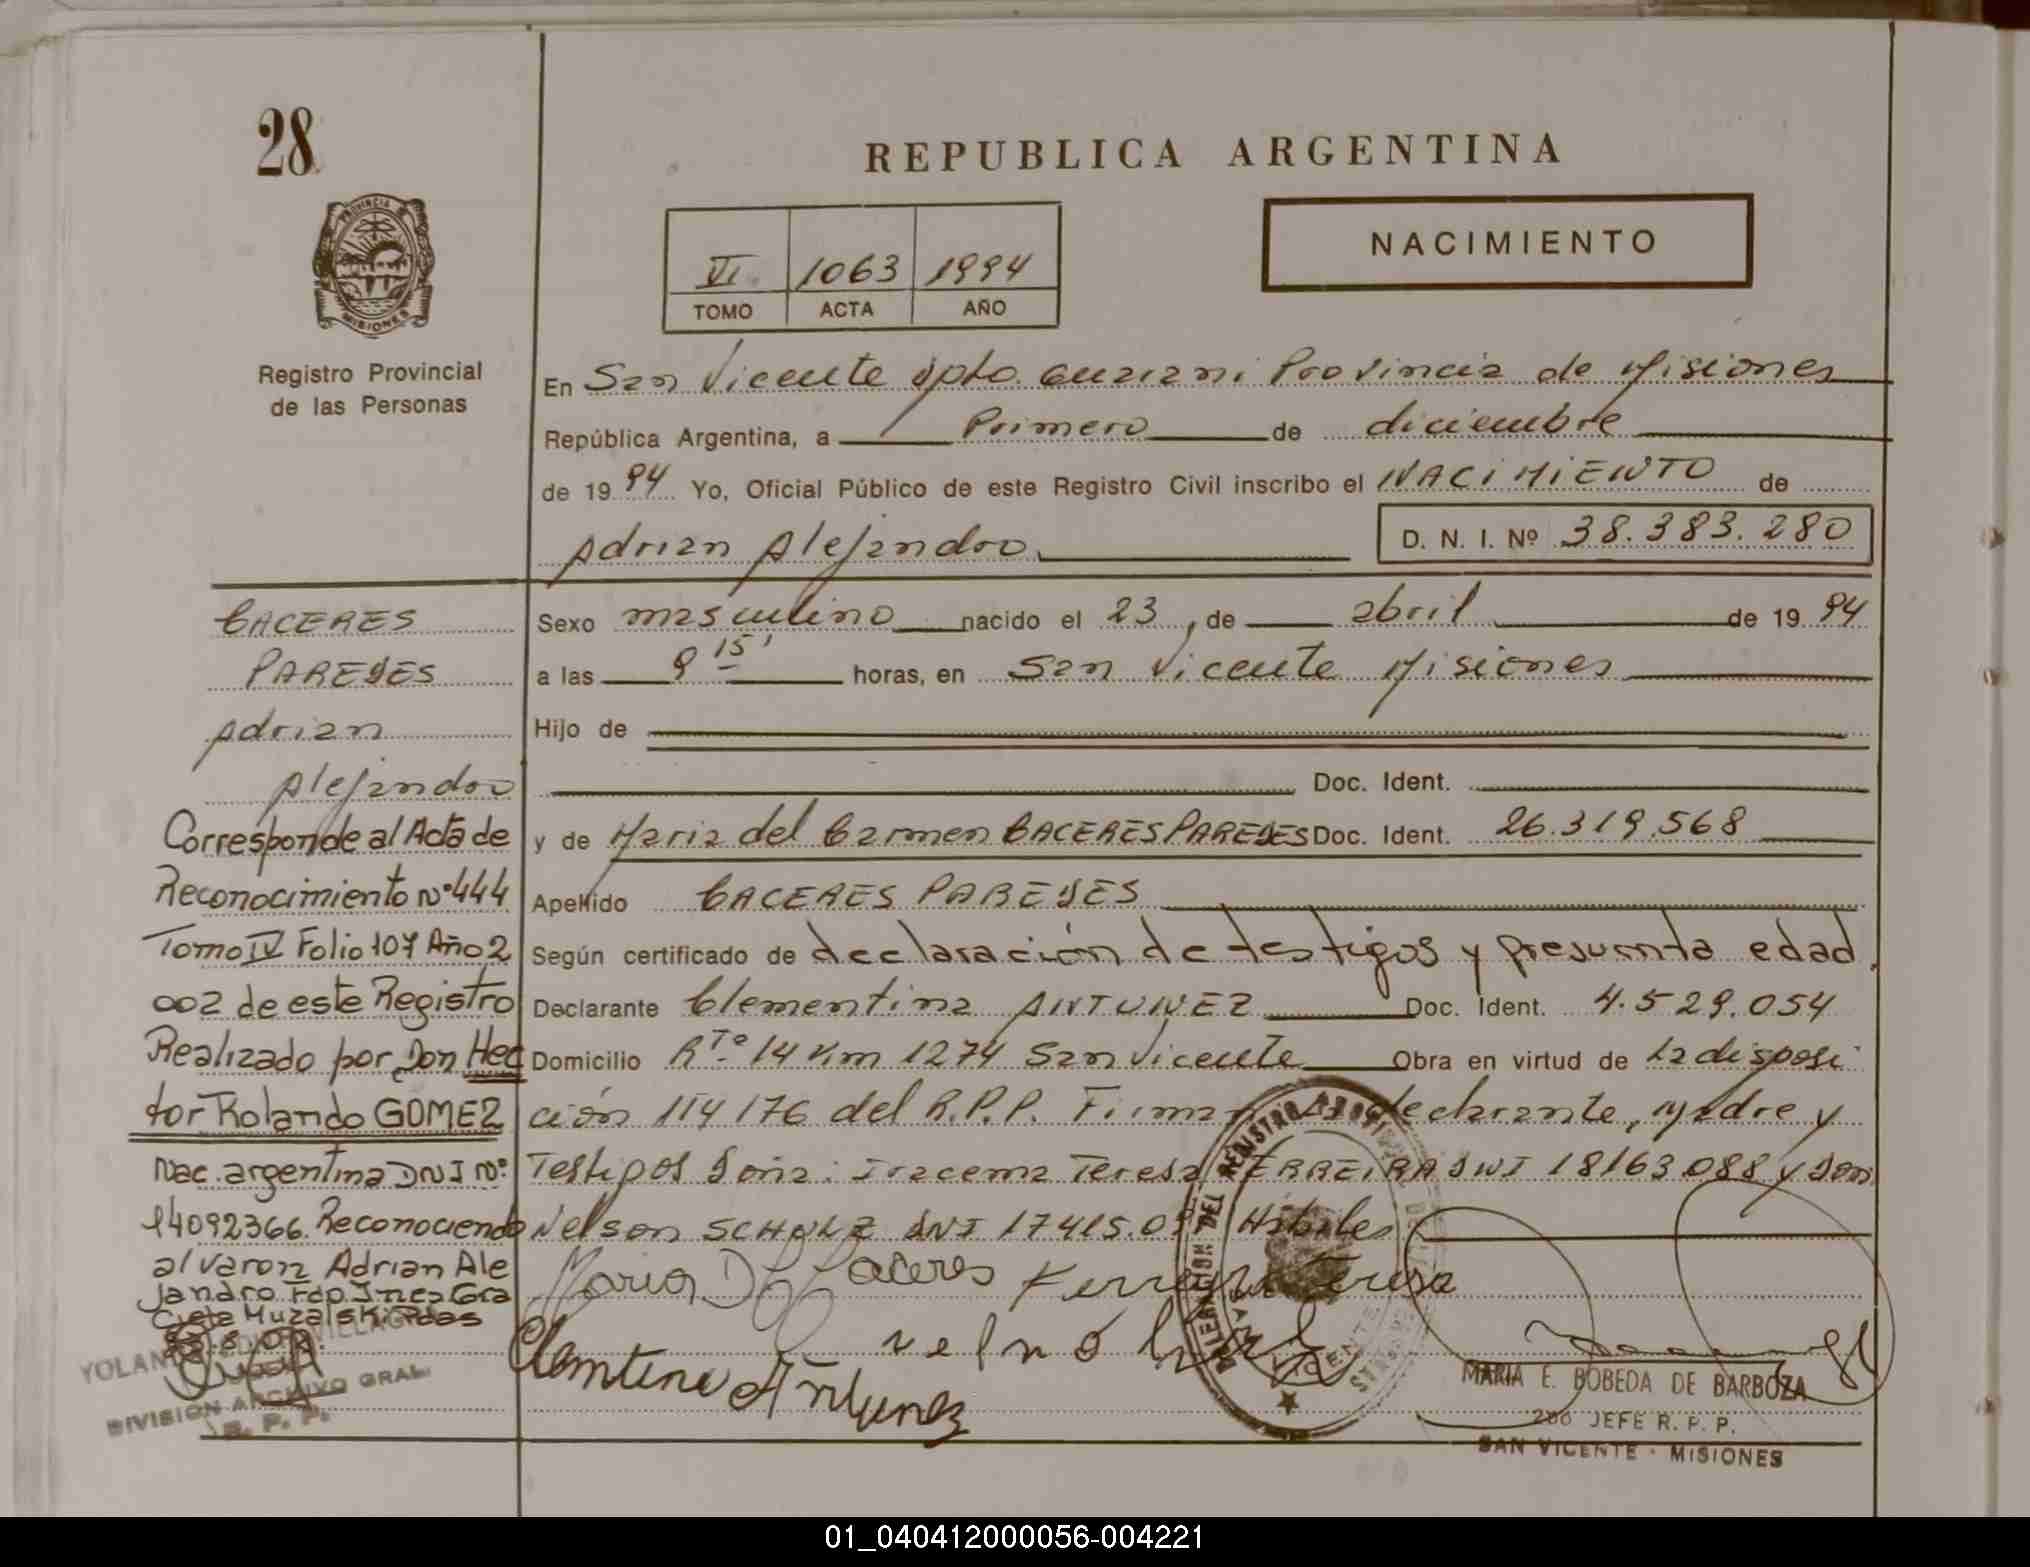 28
REPUBLICA ARGENTINA
PROVINCIA DE
MISIONES
Registro Provincial
de las Personas
VI 1063 1994
TOMO ACTA AÑO
NACIMIENTO
En San Vicente Dpto. Guarani Provincia de Misiones
República Argentina, a Primero de diciembre
de 1994 Yo, Oficial Público de este Registro Civil inscribo el NACIMIENTO de
Adrian Alejandro D. N. I. Nº 38.383.280
Sexo masculino nacido el 23 de abril de 1994
a las 9 15' horas, en San Vicente Misiones
Hijo de
Doc. Ident.
y de Maria del Carmen CACERES PAREDES Doc. Ident. 26.319.568
Apellido CACERES PAREDES
Según certificado de declaración de testigos y presunta edad.
Declarante Clementina ANTUNEZ Doc. Ident. 4.529.054
Domicilio RTa 14 Km 1274 San Vicente Obra en virtud de La disposi
ción 114176 del R.P.P. Firman La declarante, Madre y
Testigos Doña: Iracema Teresa FERREIRA DNI 18163.088 y Don
Nelson SCHULZ DNI 17415.0 Habiles
CACERES
PAREDES
Adrian
Alejandro
Corresponde al Acta de
Reconocimiento Nº 444
Tomo IV Folio 107 Año 2
002 de este Registro
Realizado por Don Hec
tor Rolando GOMEZ
Nac. argentina DNI Nº:
14092366. Reconociendo
al varon Adrian Ale
jandro Fdo. Ines Gra
ciela Muzalski Pdas
YOLAN VILLAG
DIVISION ARCHIVO GRAL.
R. P. P.
Maria D Caceres Ferreira Teresa
Clemtina Antunez
MARIA E. BOBEDA DE BARBOZA
2do JEFE R. P. P.
SAN VICENTE - MISIONES
01_040412000056-004221